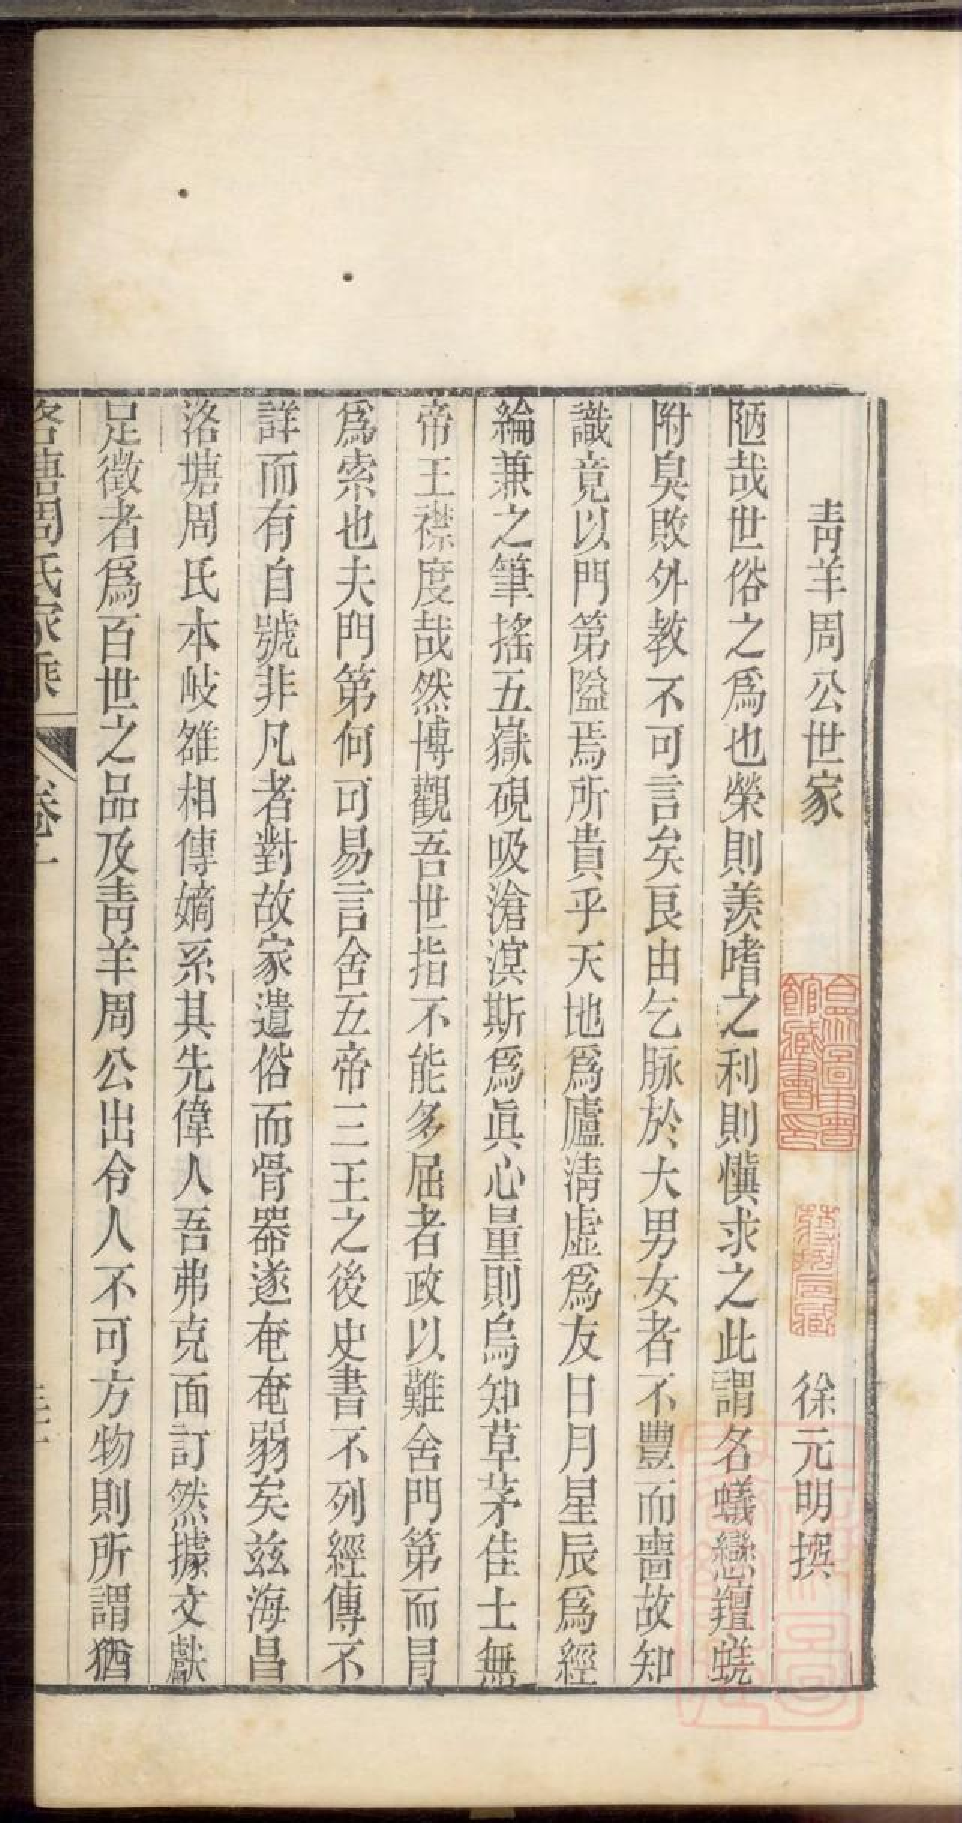 青羊周公世家
徐元明撰
陋哉世俗之爲也榮則羨嗜之利則慎求之此謂名蟻戀羶蟯
附臭敗外教不可言矣良由乞脉於大男女者不豐而嗇故知
識竟以門第隘焉所貴乎天地爲廬淸虛爲友日月星辰爲經
綸兼之筆搖五嶽硯吸滄溟斯爲眞心量則烏知草茅佳士無
帝王襟度哉然博觀吾世指不能多屈者政以難舍門第而冐
爲索也夫門第何可易言舍五帝三王之後史書不列經傳不
詳而有自號非凡者對故家遺俗而骨器遂奄奄弱矣茲海昌
洛塘周氏本岐雒相傳嫡系其先偉人吾弗克面訂然據文獻
足徵者爲百世之品及靑羊周公出令人不可方物則所謂猶
洛塘周氏家乘
卷一